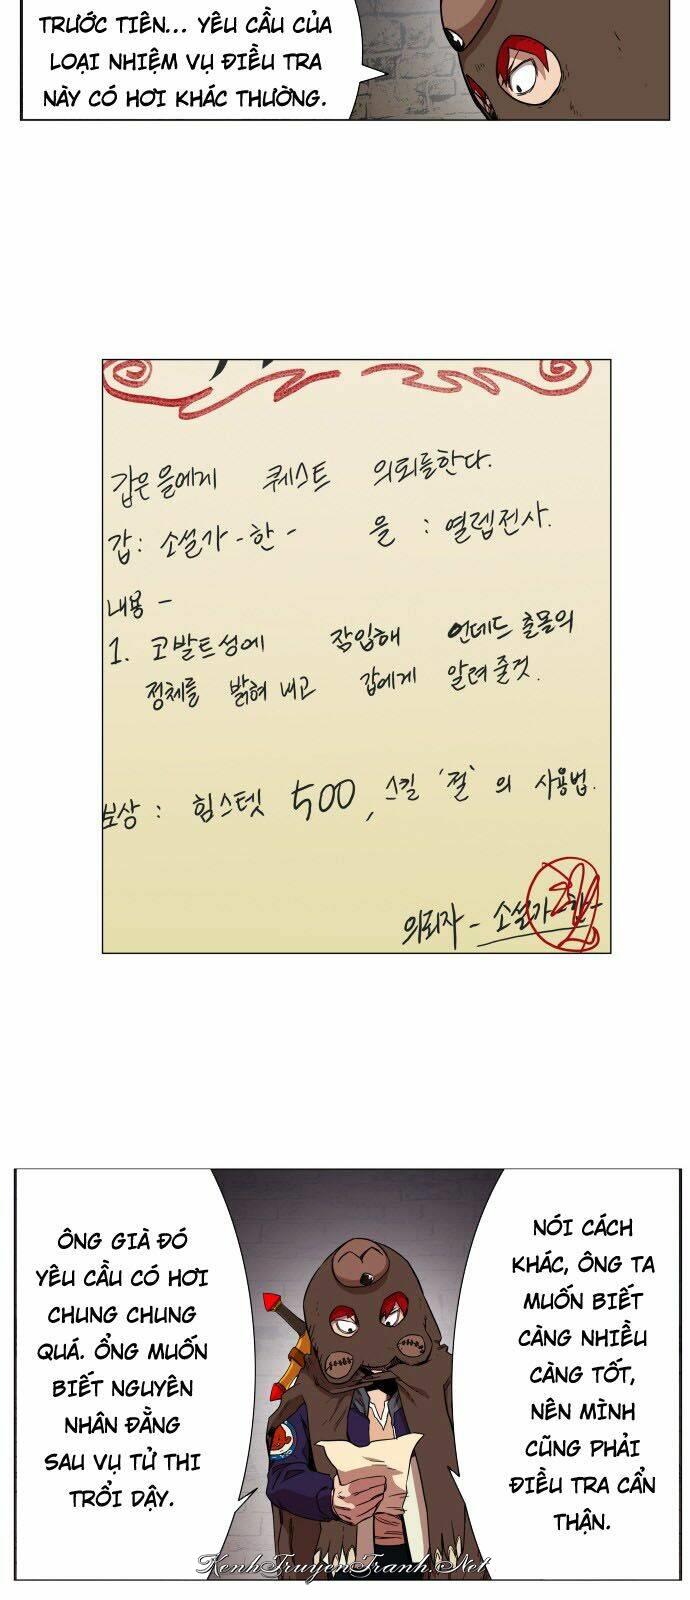 TRƯỚC TIÊN... YÊU CẦU CỦA
LOẠI NHIỆM VỤ ĐIỀU TRA
NÀY CÓ HƠI KHÁC THƯỜNG.
갑은 을에게 퀘스트 의뢰를한다.
갑: 소설가 -한- 을 : 열렙전사.
내용 -
1. 코발트성에 잠입해 언데드 출몰의
정체를 밝혀 내고 갑에게 알려 줄것.
보상 : 힘스텟 500, 스킬 '절'의 사용법.
의뢰자 - 소설가 -한-
ÔNG GIÀ ĐÓ
YÊU CẦU CÓ HƠI
CHUNG CHUNG
QUÁ. ỔNG MUỐN
BIẾT NGUYÊN
NHÂN ĐẰNG
SAU VỤ TỬ THI
TRỖI DẬY.
NÓI CÁCH
KHÁC, ÔNG TA
MUỐN BIẾT
CÀNG NHIỀU
CÀNG TỐT,
NÊN MÌNH
CŨNG PHẢI
ĐIỀU TRA CẨN
THẬN.
KenhTruyenTranh.Net